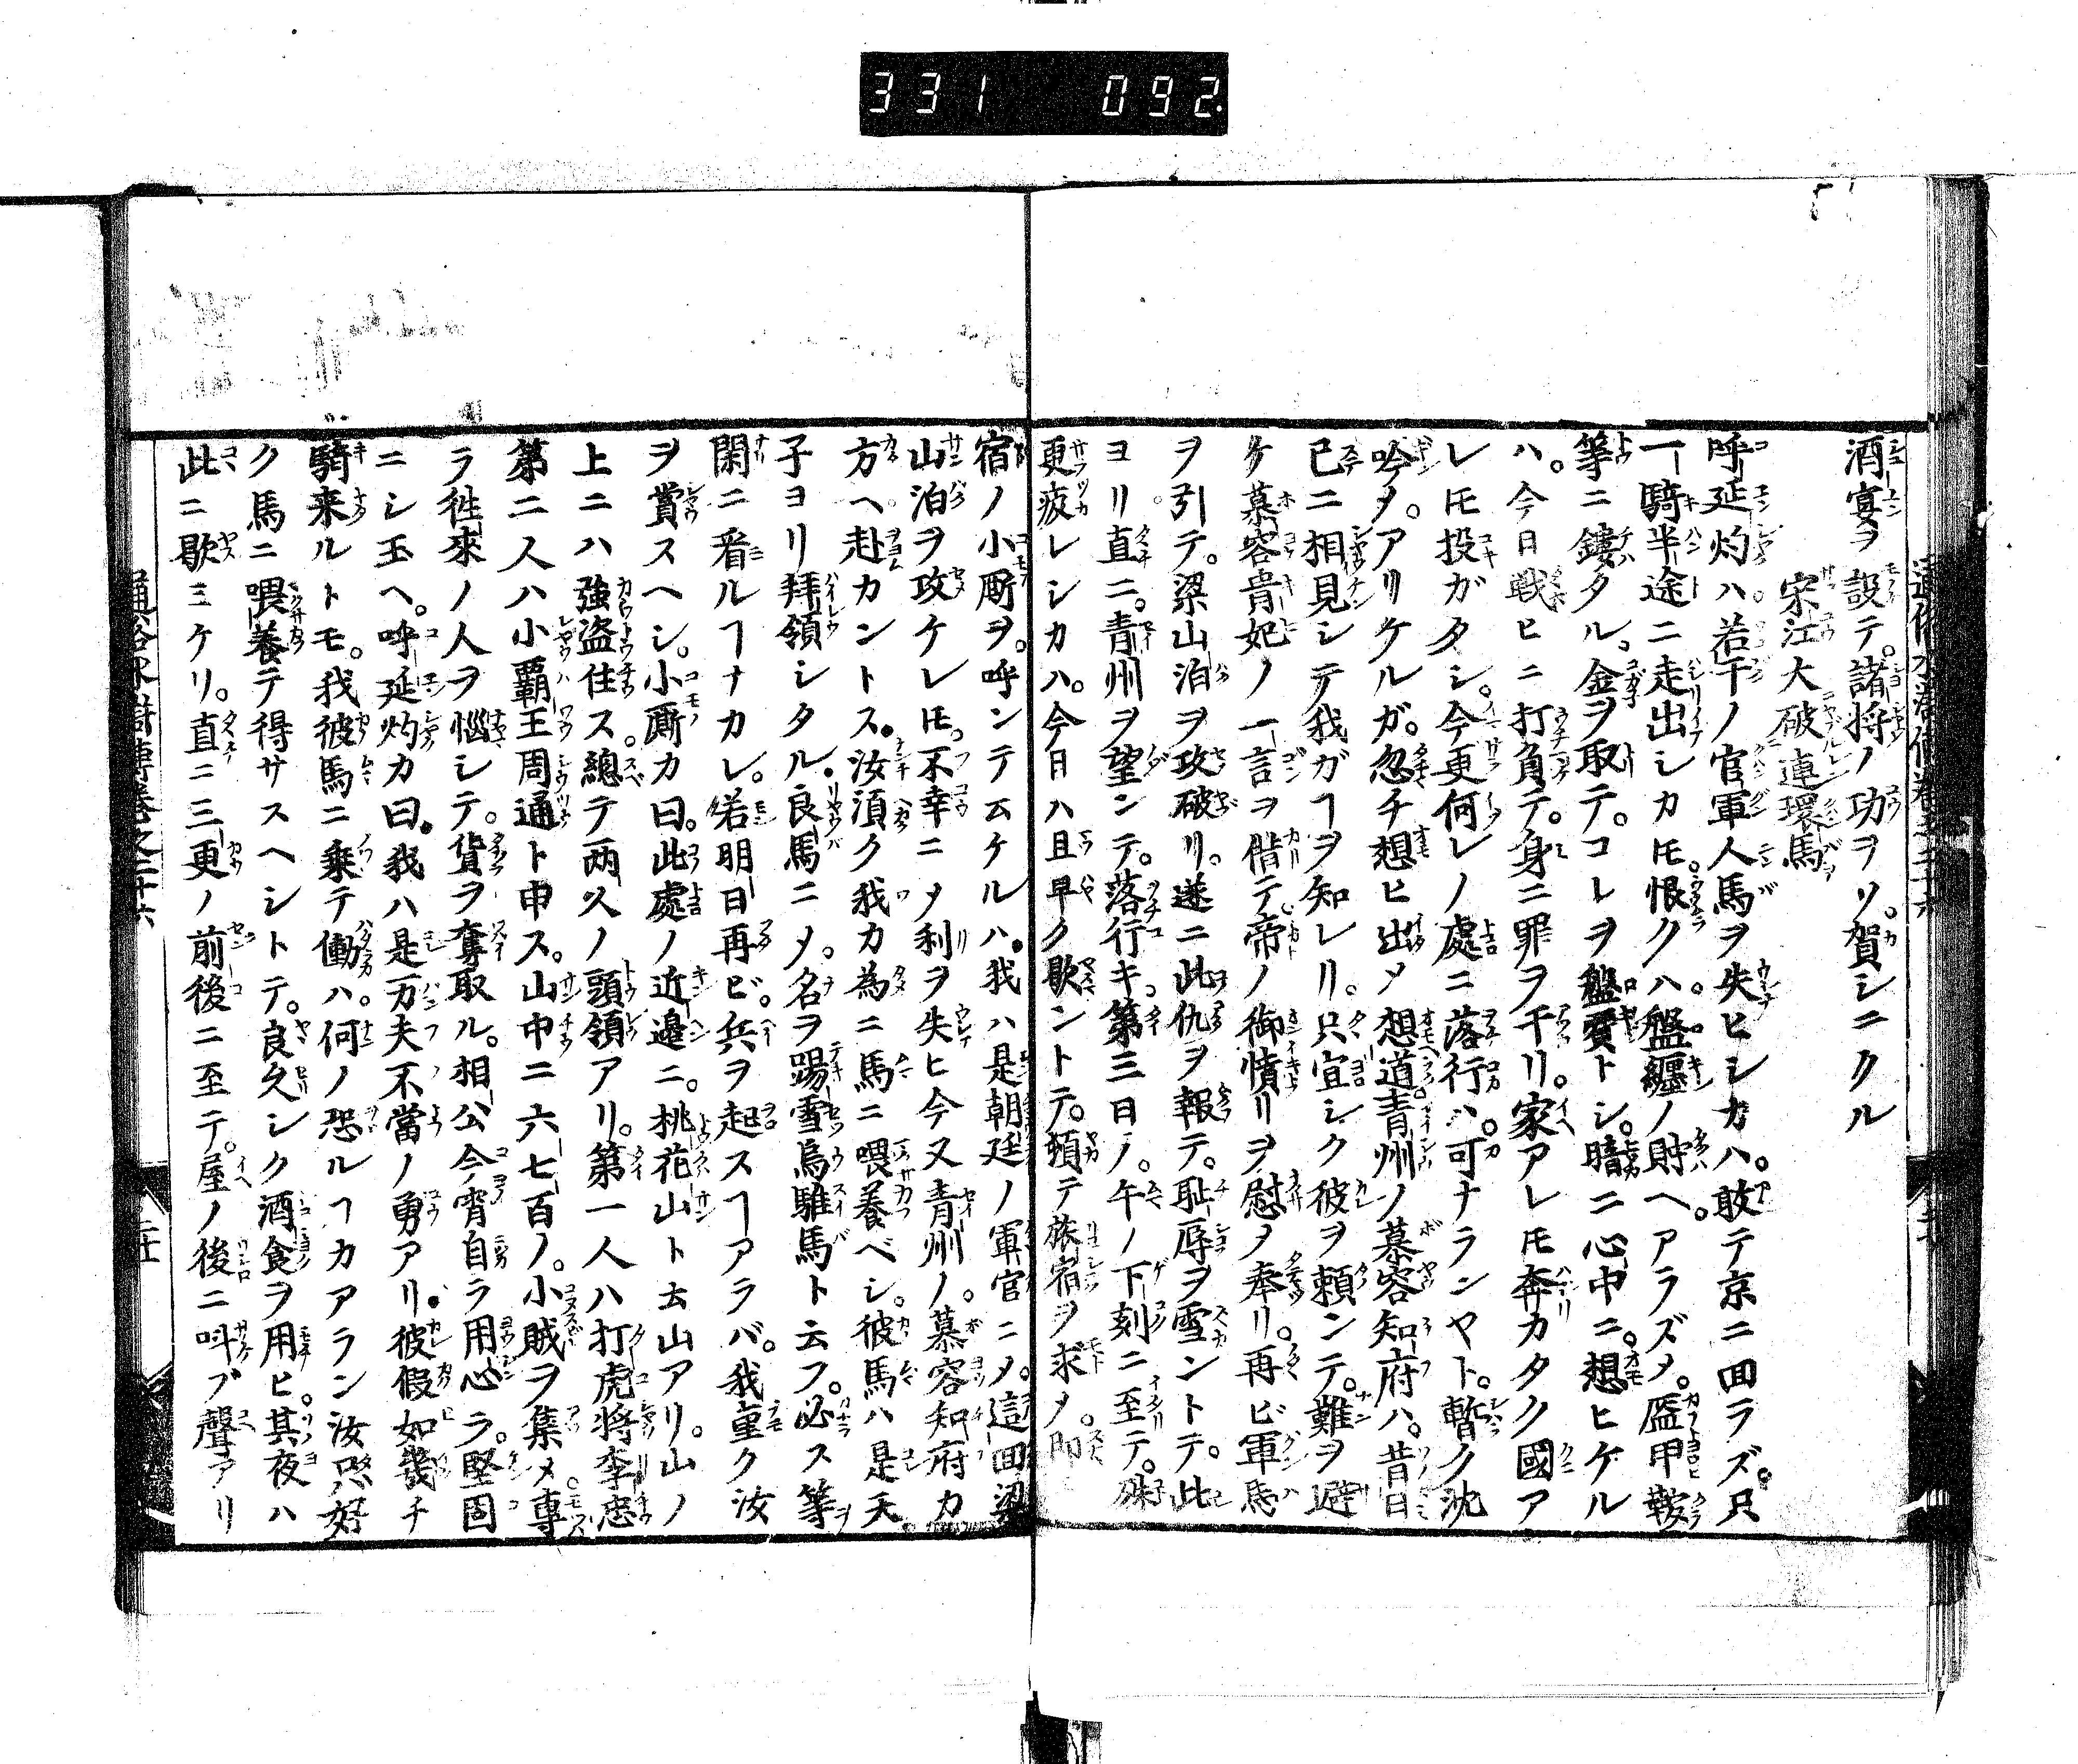 331 092
酒宴ヲ設テ。諸将ノ功ヲソ。賀シニクル
宋江大破連環馬
呼延灼ハ。若干ノ官軍人馬ヲ失ヒシカハ。敢テ京ニ回ラズ。只
一騎半途ニ走出シカ𪜈。恨クハ。盤纏ノ貯ヘ。アラズメ。盔甲鞍
等ニ鏤タル。金ヲ取テ。コレヲ盤費トシ。暗ニ心中ニ。想ヒケル
ハ。今日戦ヒニ打負テ。身ニ罪ヲ干リ。家アレ𪜈奔カタク國ア
レ𪜈投ガタシ。今更何レノ處ニ落行ハ。可ナランヤト。暫ク沈
吟ヲ。アリケルガ。忽チ想ヒ出メ想道青州ノ慕容知府ハ。昔日
已ニ相見シテ我ガヿヲ知レリ。只宜シク彼ヲ頼ンテ。難ヲ避
ケ慕容貴妃ノ一言ヲ借テ。帝ノ御憤リヲ慰メ奉リ。再ビ軍馬
ヲ引テ。梁山泊ヲ攻破リ。遂ニ此仇ヲ報テ。恥辱ヲ雪ントテ。此
ヨリ直ニ。青州ヲ望ンテ。落行キ。第三日ノ。午ノ下刻ニ至テ。殊
更疲レシカハ。今日ハ且早ク歇ントテ。頓テ旅宿ヲ求メ。即
宿ノ小厮ヲ。呼ンテ云ケルハ。我ハ是朝廷ノ軍官ニメ。這回梁
山泊ヲ攻ケレ𪜈。不幸ニメ利ヲ失ヒ今又青州ノ。慕容知府カ
方ヘ赴カントス。汝須ク我カ為ニ馬ニ喂養ベシ。彼馬ハ是天
子ヨリ拜領シタル。良馬ニメ。名ヲ踢雪烏騅馬ト云フ。必ス等
閑ニ看ルヿナカレ。若明日再ビ。兵ヲ起スヿアラバ。我重ク汝
ヲ賞スヘシ。小厮カ曰。此處ノ近邉ニ。桃花山ト云山アリ。山ノ
上ニハ強盗住ス。總テ両人ノ頭領アリ。第一人ハ打虎将李忠
第二人ハ小覇王周通ト申ス。山中ニ六七百ノ。小賊ヲ集メ。專
ラ徃來ノ人ヲ惱シテ。貨ヲ奪取ル。相公今宵自ラ用心ラ。堅固
ニシ玉ヘ。呼延灼カ曰。我ハ是一万夫不當ノ勇アリ。彼假如幾千
騎来ルトモ。我彼馬ニ乗テ働ハ。何ノ恐ルヿカアラン汝只好
ク馬ニ喂養テ得サスヘシトテ。良久シク酒食ヲ用ヒ。其夜ハ
此ニ歇ミケリ。直ニ三更ノ前後ニ至テ。屋ノ後ニ呌ブ聲アリ